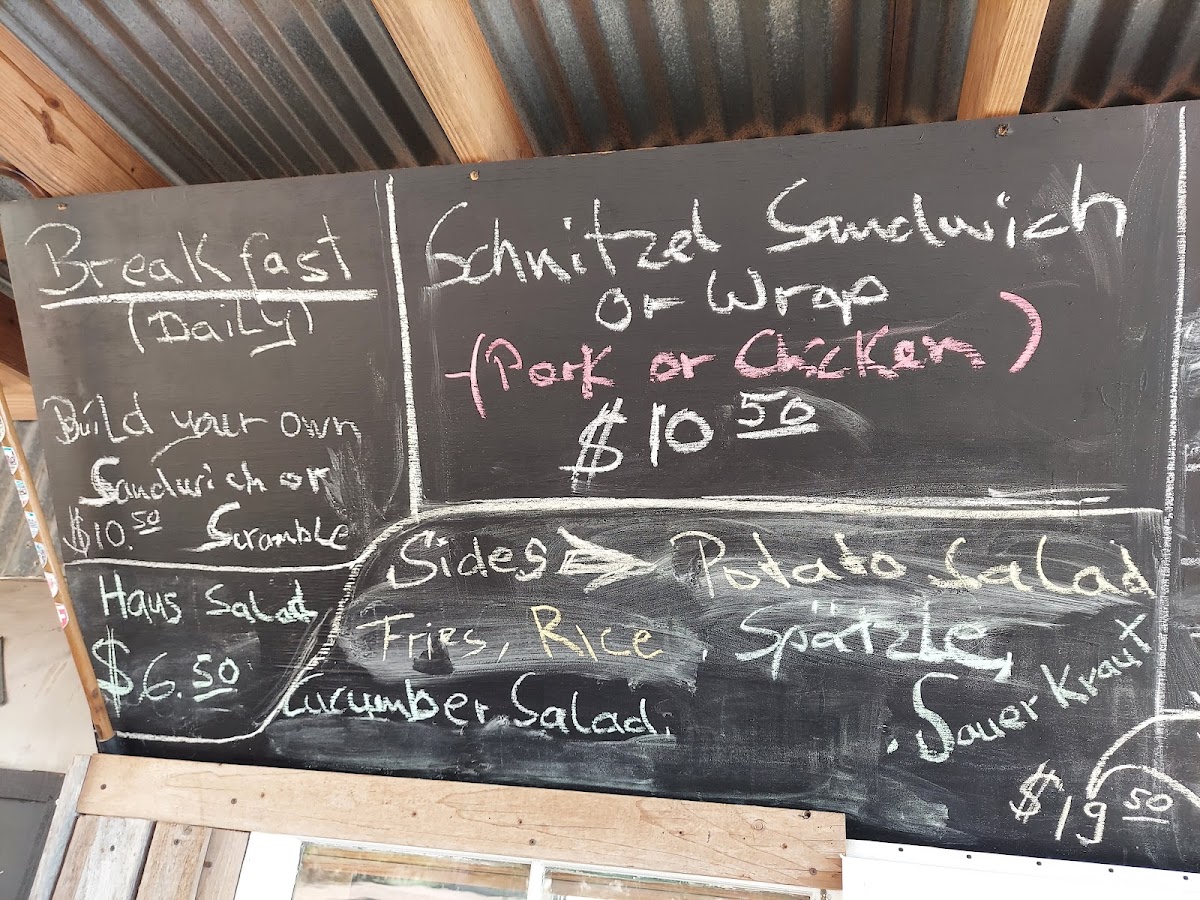 Breakfast
(Daily)
Build your own
Sandwich or
$10.50 Scramble
Haus Salad
$6.50
Schnitzel Sandwich
or Wrap
(Pork or Chicken)
$10 50
Sides Potato Salad
Fries, Rice, Spätzle,
Cucumber Salad, Sauer Kraut
$19 50